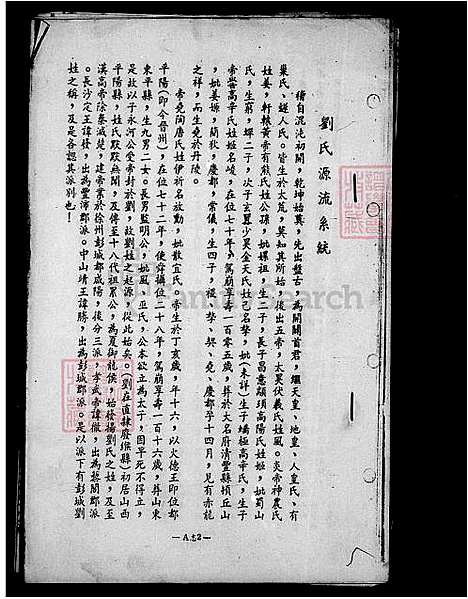 劉氏源流系統
稽自混沌初開，乾坤始奠，先出盤古，為開闢首君，繼天皇、地皇、人皇氏、有
巢氏、燧人氏。皆生於太荒，莫知其所始，後出五帝，太昊伏羲氏姓風。炎帝神農氏
姓姜，軒轅黃帝有熊氏姓公孫，妣嫘祖，生二子，長子昌意顓頊高陽氏姓姬，妣蜀山
氏，生窮，蟬二子，次子玄囂少昊金天氏姓己名摯，妣（未詳）生子蟜極高辛氏，生子
帝嚳高辛氏姓姬名岐，在位七十年，駕崩享壽一百零五歲，葬於大名府清豐縣頓丘山
，妣姜嫄，簡狄，慶都，常儀，生四子，長摯、契、堯、慶都孕十四月，見有赤龍
之祥，而生堯於丹陵。
帝堯陶唐氏姓伊祈名放勳，妣散宜氏。帝生於丁亥歲，年十六，以火德王即位都
平陽（即今晉州），在位七十二年，使舜攝位二十八年，駕崩享壽一百十六歲，葬山東
東平縣，生九男二女。長男監明公，妣風、巫氏，公本欲立為太子，因早死不得立，
是故以子永河公受帝封於劉，故劉姓之起源，從此始矣。（劉在直隸府緱縣）初居山西
平陽縣，姓氏默默無聞，及傳至十八代祖累公，為夏御龍侯，始發揚劉氏之姓，及至
漢高帝除秦滅楚，建帝業於徐州彭城都咸陽，後分三派，孝武帝諱徹，出為黎閣郡派
。長沙定王諱發，出為豐沛郡派。中山靖王諱勝，出為彭城郡派。是以派下有彭城劉
姓之稱，及是各認其派別也！
—A.志2—